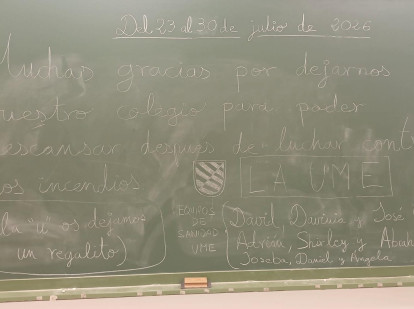 Del 23 al 30 de julio de 2026
Muchas gracias por dejarnos
vuestro colegio para poder
descansar después de luchar contra
los incendios
LA UME
"u" os dejamos
un regalito)
EQUIPOS
DE
SANIDAD
UME
David, y José
Adrián, Shirley y Abraham
Joseba, Daniel y Angela